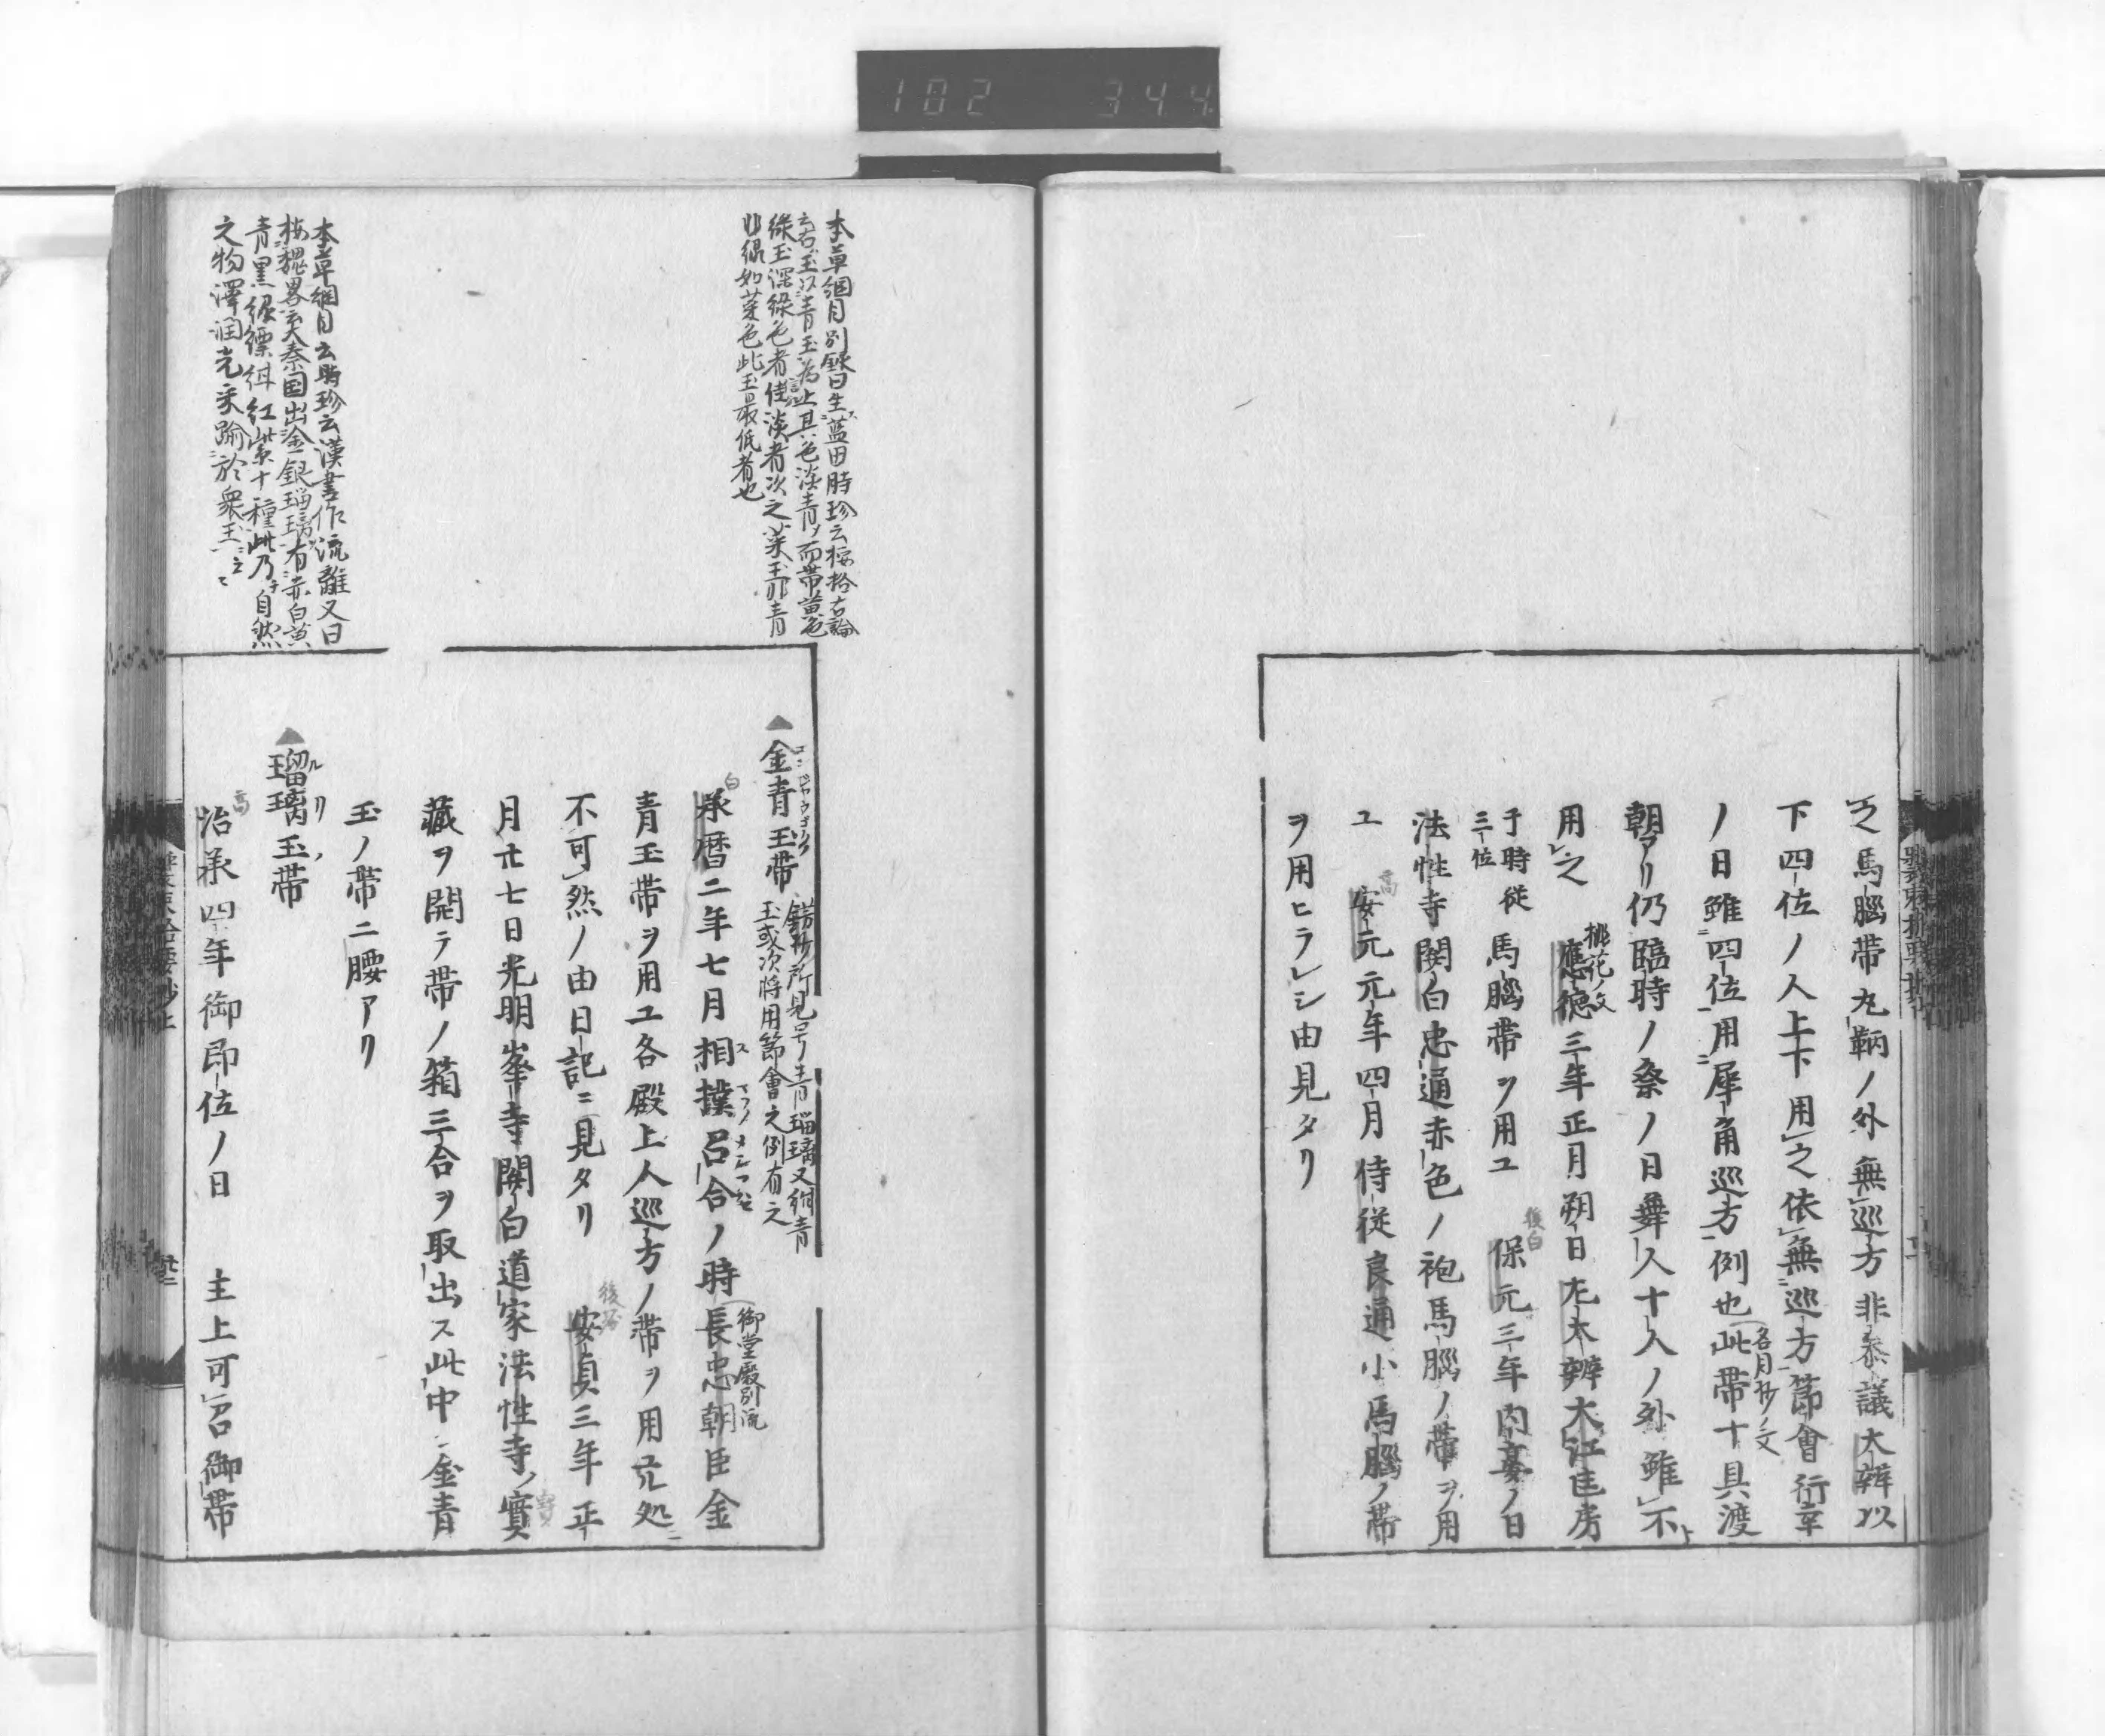 102 344
之馬腦帶丸鞆ノ外無巡方非叅議大辨以
下四位ノ人上下用之依無巡方節會行幸
ノ日雖四位用犀角巡方例也此帶十具渡
各月抄ノ文
朝アリ仍臨時ノ祭ノ日舞人十人ノ外雖不
用之 應德三年正月朔日左大辨大江匡房
桃花ノ文
于時従三位 馬腦帶ヲ用ユ 保元三年内宴ノ日
後白
法性寺関白忠通赤色ノ袍馬腦ノ帶ヲ用
ユ 安元元年四月侍従良通小馬腦ノ帶
高
ヲ用ヒラレシ由見タリ
本草綱目別錄曰生藍田時珍云按格古論
云古玉以青玉為上其色淡青而帶黄色
綠玉深綠色者佳淡者次之菜玉非青
非綠如菜色此玉最低者也
金青玉帶
餝抄所見号青瑠璃又紺青
玉或次將用節會之例有之
承暦二年七月相撲召合ノ時長忠朝臣金
白
御堂殿別流
青玉帶ヲ用ユ各殿上人巡方ノ帶ヲ用元処
不可然ノ由日記ニ見タリ 安貞三年正
月廿七日光明峯寺関白道家法性寺ノ寶
藏ヲ開テ帶ノ箱三合ヲ取出ス此中ニ金青
玉ノ帶二腰アリ
本草綱目云時珍云漢書作流離又曰
按魏畧云大秦国出金銀瑠璃有赤白黄
青黒緑縹紺紅紫十種此乃自然
之物澤潤光采踰於衆玉云云
瑠璃玉帶
ルリノ
治承四年御即位ノ日 主上可召御帶
高